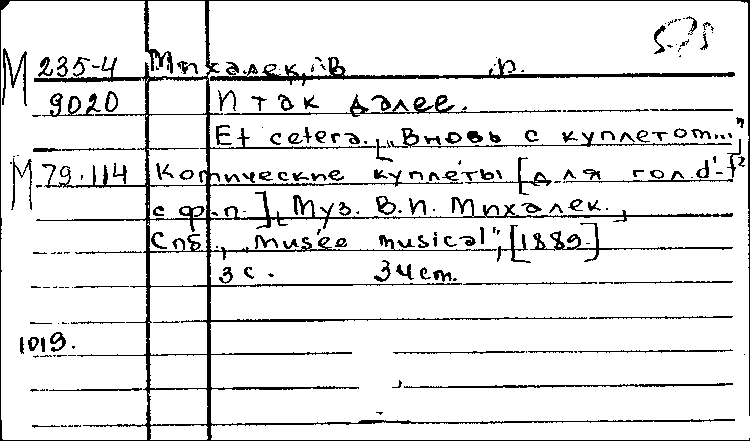 575
М 235-4 Михалек, В. п.
9020 И так далее.
Et cetera. [„Вновь с куплетом..."]
М 79.114 Комические куплеты [для гол. d¹-f²
с ф.-п.], [Муз. В.П. Михалек.]
Спб., „Musée musical", [1889.]
3 с. 34 cm.
1019.